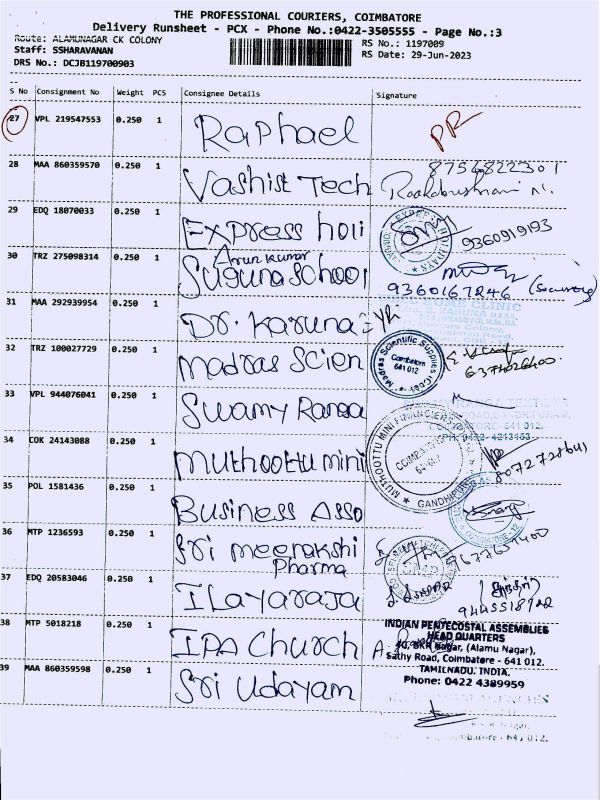 THE PROFESSIONAL COURIERS, COIMBATORE
Delivery Runsheet - PCX - Phone No.:0422-3505555 - Page No.:3
Route: ALAMUNAGAR CK COLONY
RS No.: 1197009
Staff: SSHARAVANAN
RS Date: 29-Jun-2023
DRS No.: DCJB119700903
S No Consignment No Weight PCS Consignee Details Signature
27 VPL 219547553 0.250 1 Raphael
28 MAA 860359570 0.250 1 Vashist Tech 8754822301
29 EDQ 18070033 0.250 1 Express holi 9360919193
30 TRZ 275098314 0.250 1 Arun Kumar
Suguna School 9360167246 (Security)
31 MAA 292939954 1 Dr. Karuna
32 TRZ 100027729 0.250 1 Madras Scien Madras Scientific Supplies Coimbatore 641 012
33 VPL 944076041 0.250 1 Swamy Ranga
COIMBATORE - 641 012.
PH: 0422 - 4213153
34 COK 24143088 0.250 1 Muthoottu mini MUTHOOTTU MINI FINANCIERS GANDHIPURAM
35 POL 1581436 0.250 1 Business Asso
36 MTP 1236593 0.250 1 Sri meenakshi
Pharma
37 EDQ 20583046 0.250 1 ILayaraja
38 MTP 5018218 0.250 1 IPA Church
INDIAN PENTECOSTAL ASSEMBLIES
HEAD QUARTERS
Nagar, (Alamu Nagar),
Sathy Road, Coimbatore - 641 012.
TAMILNADU. INDIA.
Phone: 0422 4389959
39 MAA 860359598 0.250 1 Sri Udayam